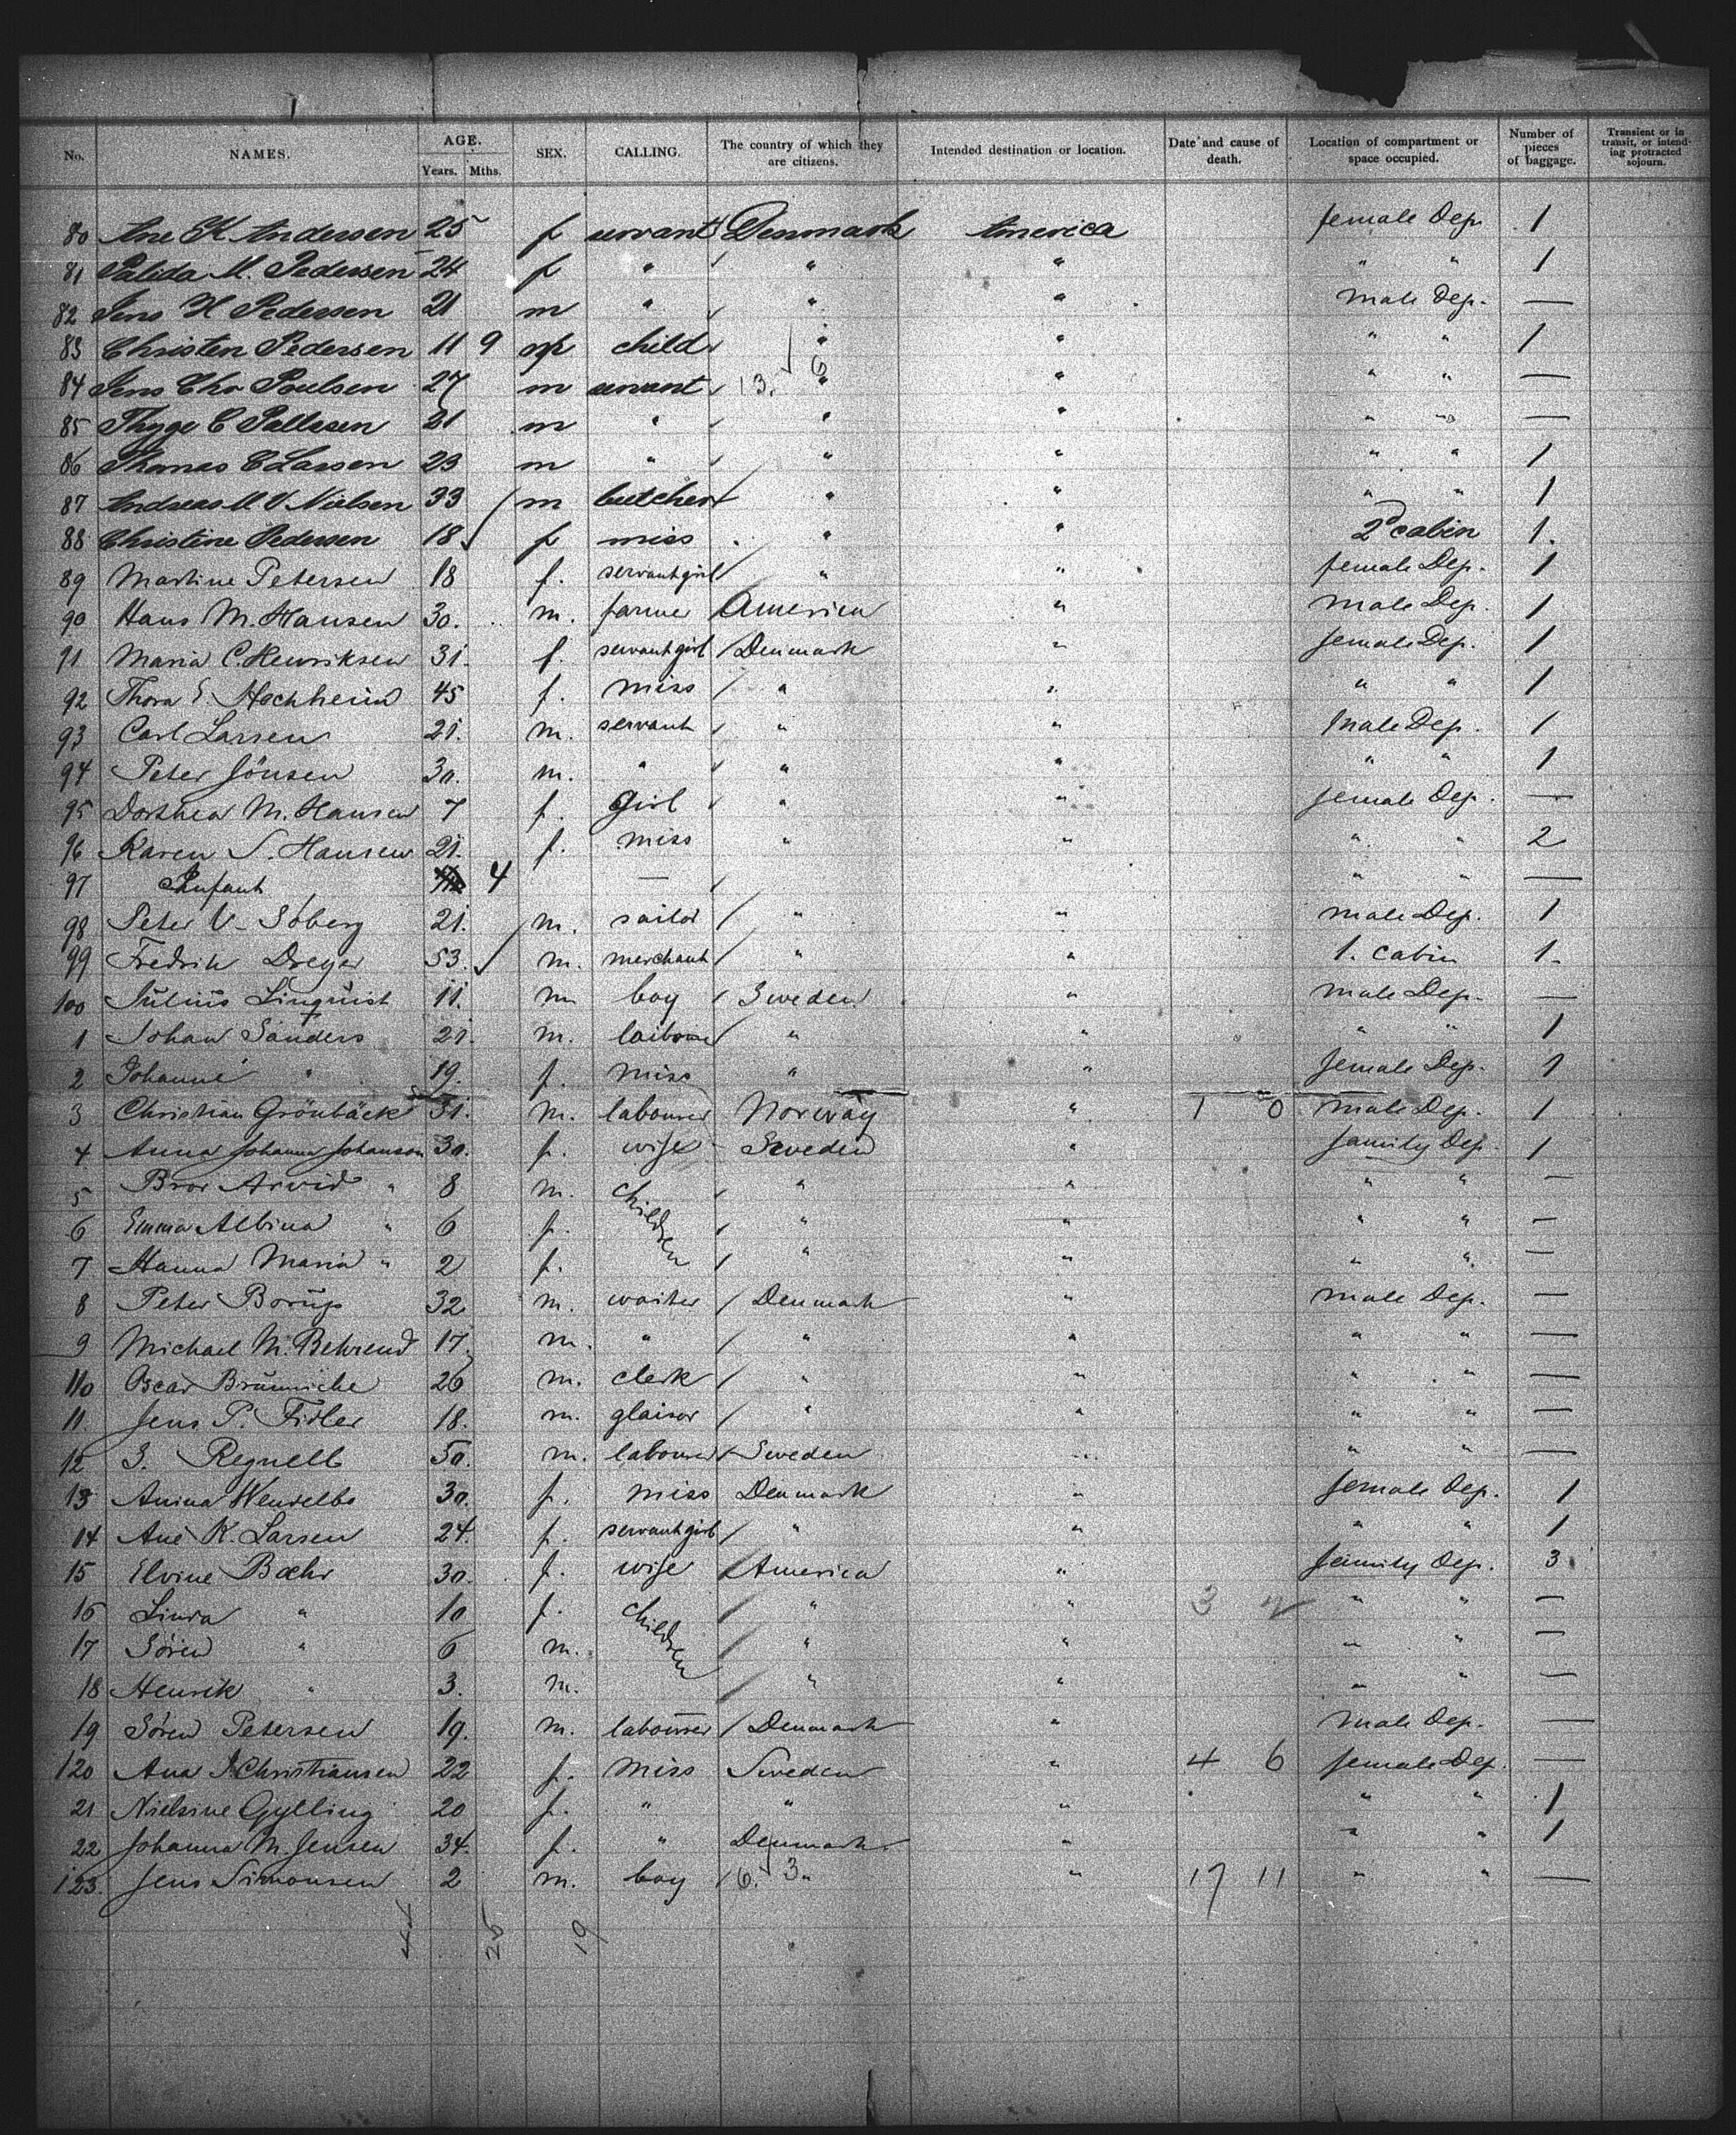 No. NAMES. AGE. Years. Mths. SEX. CALLING. The country of which they are citizens. Intended destination or location. Date and cause of death. Location of compartment or space occupied. Number of pieces of baggage. Transient or in transit, or intending protracted sojourn.
80 Ane K Andersen 25 f servant Denmark America female Dep. 1
81 M. Pedersen 24 f " " " " " 1
82 Jens H Pedersen 21 m " " " male Dep. —
83 Christen Pedersen 11 9 child " " " " 1
84 Jens Chr Poulsen 27 m servant 13. 6 " " " " —
85 Thyge C 21 m " " " " " —
86 Thomas C Larsen 23 m " " " " " 1
87 Andreas M V Nielsen 33 m butcher " " " " 1
88 Christine Pedersen 18 f miss " " 2d cabin 1.
89 Martine Petersen 18 f. servantgirl " " female Dep. 1
90 Hans M. Hansen 30. m. farmer America " male Dep. 1
91 Maria C. Henriksen 31. f. servantgirl Denmark " female Dep. 1
92 Thora E. Hochheim 45 f. miss " " " " 1
93 Carl Larsen 21. m. servant " " male Dep. 1
94 Peter Jönsen 30. m. " " " " " 1
95 Dorthea M. Hansen 7 f. girl " " female Dep. —
96 Karen S. Hansen 21. f. miss " " " " 2
97 Infant 4 — " " —
98 Peter V. Söberg 21. m. sailor " " male Dep. 1
99 Fredrik Dreyer 53. m. merchant " " 1. cabin 1.
100 Julius Linquist 11. m boy Sweden " male Dep. —
1 Johan Sanders 21. m. " " " " 1
2 Johanne " 19. f. miss " " female Dep. 1
3 Christian Grönbäck 31. m. labourer Norway " 1 0 male Dep. 1
4 Anna Johanna Johanson 30. f. wife Sweden " family Dep. 1
5 Bror Arvid " 8 m. children " " " " —
6 Emma Albina " 6 f. " " " " —
7 Hanna Maria " 2 f. " " " " —
8 Peter Borup 32 m. waiter Denmark " male Dep. —
9 Michael M. Behrend 17. m. " " " " " —
110 Oscar Brünniche 26 m. clerk " " " " —
11. Jens P. Fidler 18. m. glaisor " " " " —
12 Regnell 50. m. labourer Sweden " " " —
13 Anina Wendelbo 30. f. miss Denmark " female Dep. 1
14 Ane K. Larsen 24. f. servantgirl " " " " 1
15 Elvine Bæhr 30. f. wife America " family Dep. 3
16 " 10 f. children " " 3 " " —
17 Sören " 6 m. " " " " —
18 Henrik " 3. m. " " " " —
19 Sören Petersen 19. m. labourer Denmark " male Dep. —
120 Ana Christiansen 22 f. miss Sweden " 4 6 female Dep. —
21 Nielsine Gylling 20 f. " " " " " 1
22 Johanna M. Jensen 34. f. " Denmark " " " 1
123. Jens Simonsen 2 m. boy 6. 3 " " 17 11 " " —
44 25 19